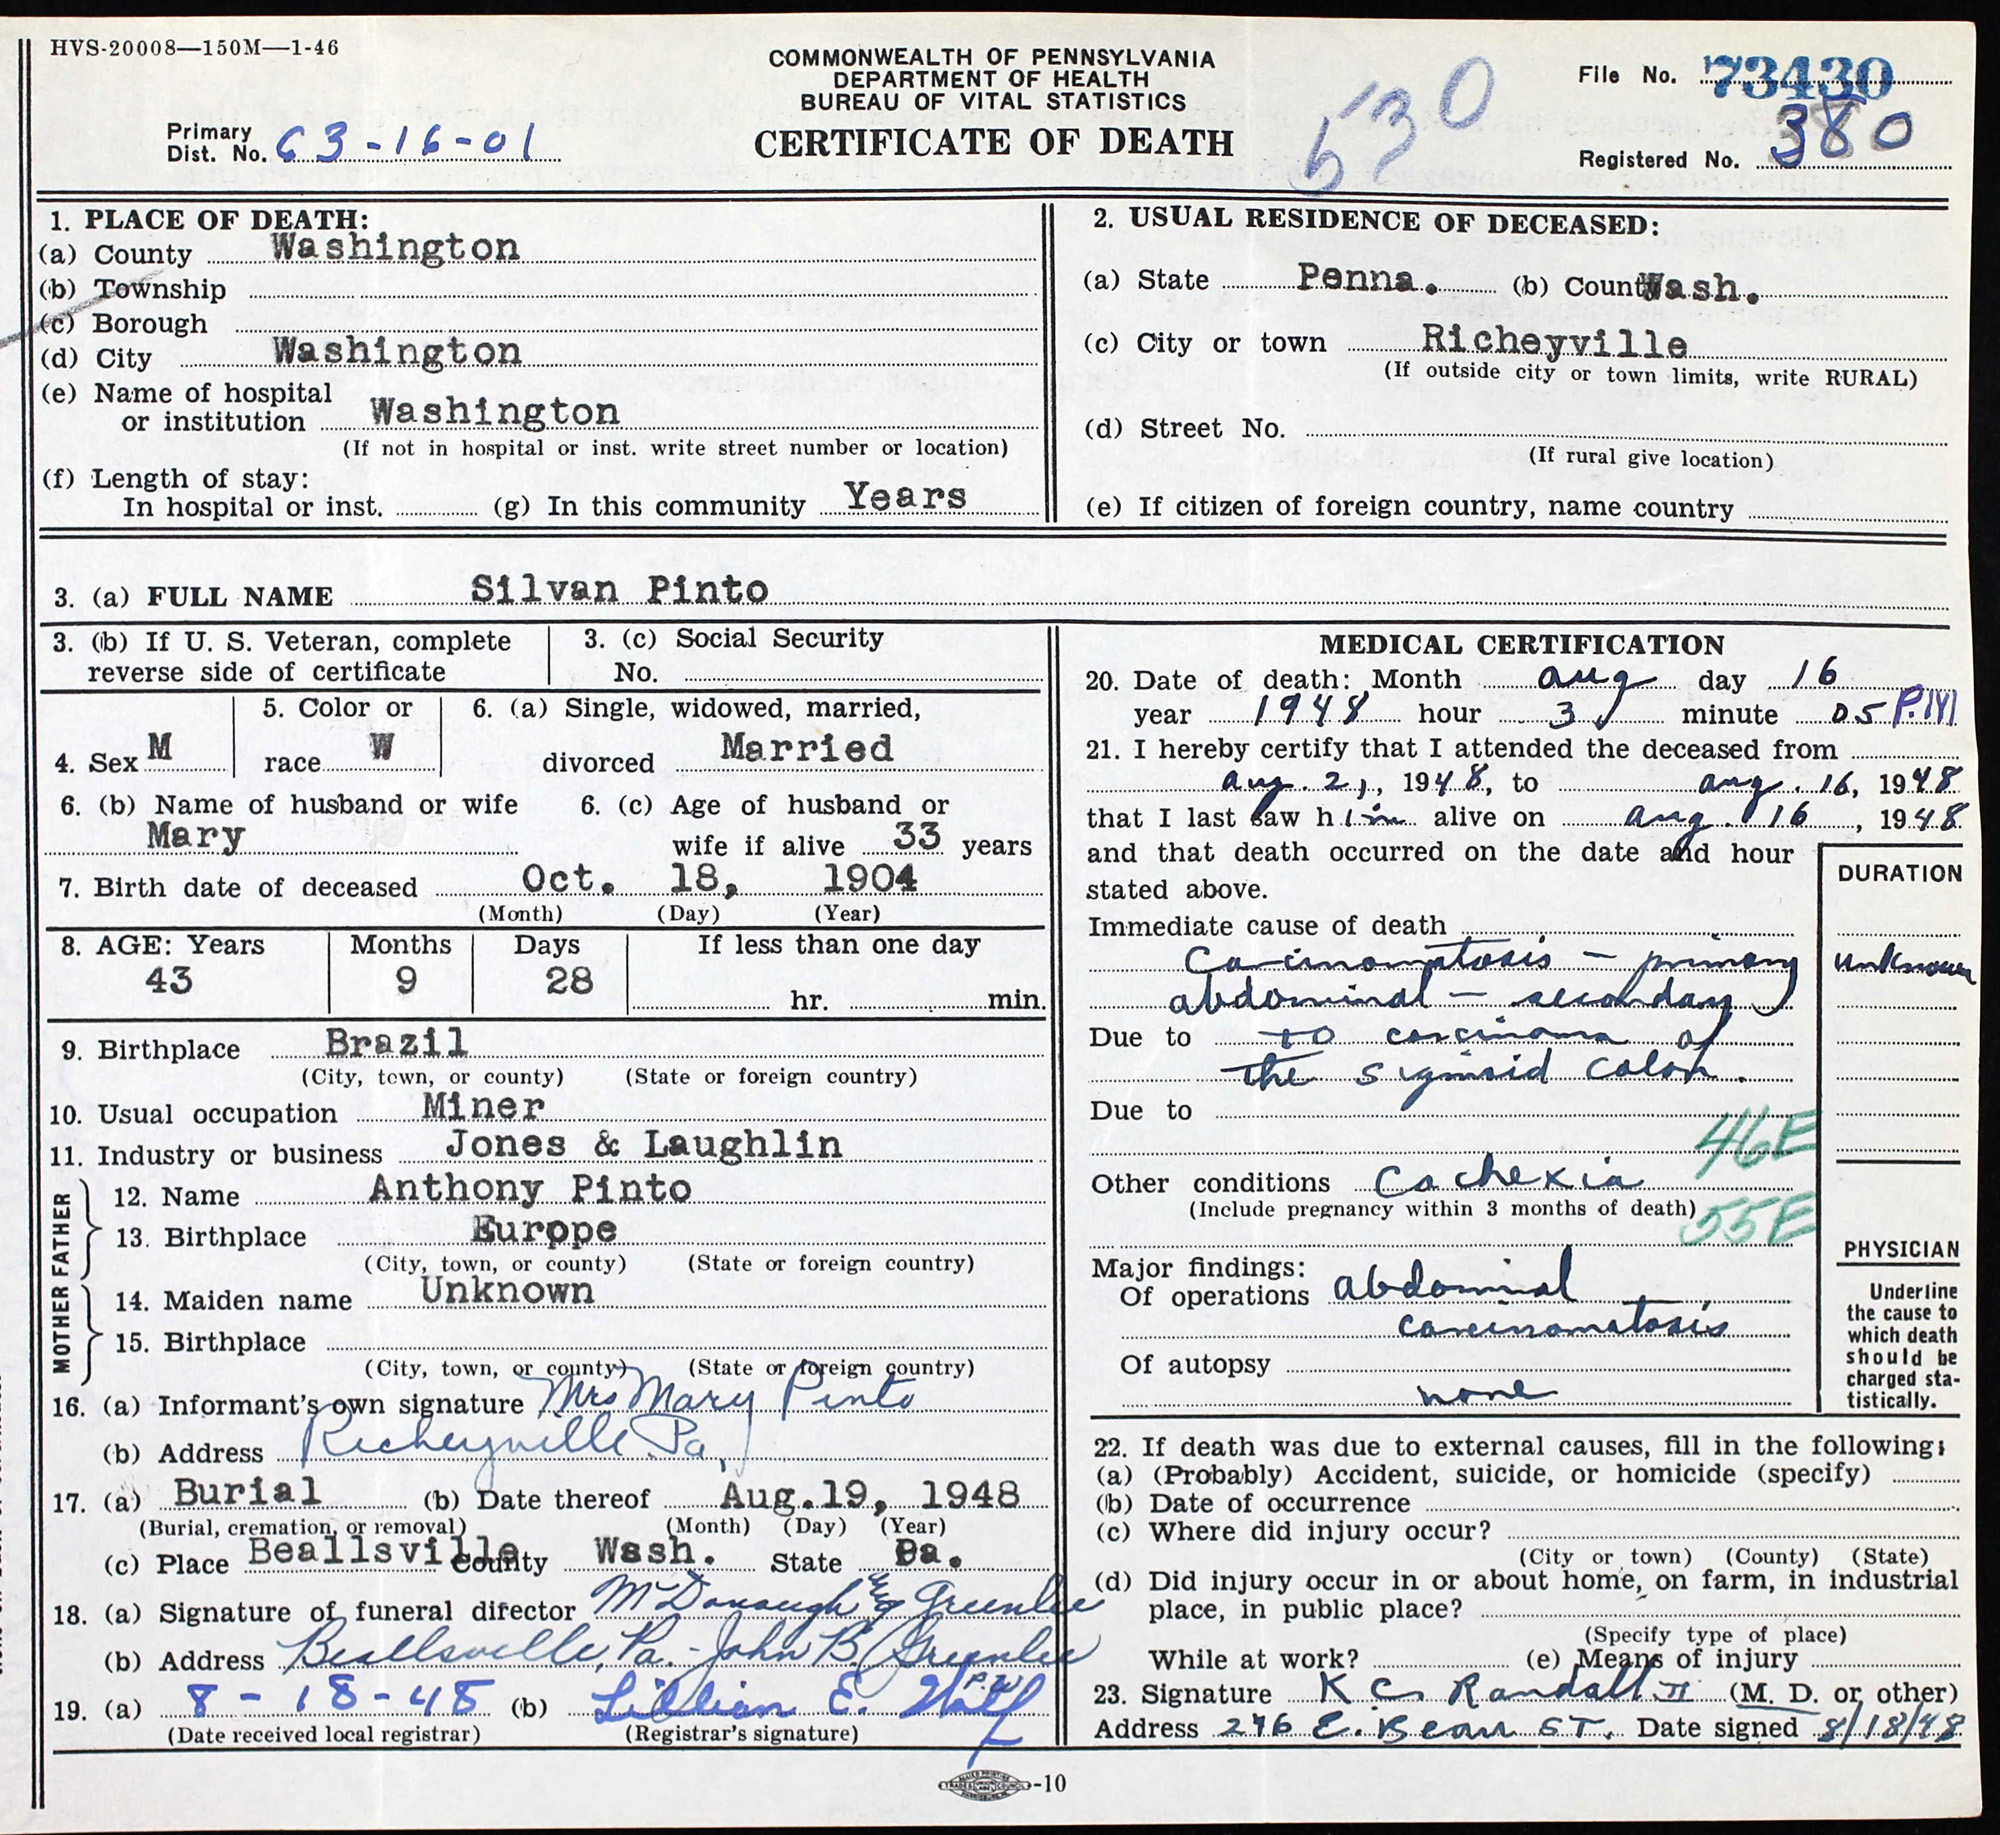 HVS-20008—150M—1-46
COMMONWEALTH OF PENNSYLVANIA
DEPARTMENT OF HEALTH
BUREAU OF VITAL STATISTICS
CERTIFICATE OF DEATH
530
File No. 73430
Registered No. 380
Primary
Dist. No. 63-16-01
1. PLACE OF DEATH:
(a) County Washington
(b) Township
(c) Borough
(d) City Washington
(e) Name of hospital
or institution Washington
(If not in hospital or inst. write street number or location)
(f) Length of stay:
In hospital or inst. (g) In this community Years
2. USUAL RESIDENCE OF DECEASED:
(a) State Penna. (b) County Wash.
(c) City or town Richeyville
(If outside city or town limits, write RURAL)
(d) Street No.
(If rural give location)
(e) If citizen of foreign country, name country
3. (a) FULL NAME Silvan Pinto
3. (b) If U. S. Veteran, complete
reverse side of certificate
3. (c) Social Security
No.
4. Sex M
5. Color or
race W
6. (a) Single, widowed, married,
divorced Married
6. (b) Name of husband or wife
Mary
6. (c) Age of husband or
wife if alive 33 years
7. Birth date of deceased Oct. 18, 1904
(Month) (Day) (Year)
8. AGE: Years Months Days If less than one day
43 9 28 hr. min.
9. Birthplace Brazil
(City, town, or county) (State or foreign country)
10. Usual occupation Miner
11. Industry or business Jones & Laughlin
FATHER
12. Name Anthony Pinto
13. Birthplace Europe
(City, town, or county) (State or foreign country)
MOTHER
14. Maiden name Unknown
15. Birthplace
(City, town, or county) (State or foreign country)
16. (a) Informant's own signature Mrs Mary Pinto
(b) Address Richeyville Pa,
17. (a) Burial (b) Date thereof Aug.19, 1948
(Burial, cremation, or removal) (Month) (Day) (Year)
(c) Place Beallsville County Wash. State Pa.
18. (a) Signature of funeral director McDonough & Greenlee
(b) Address Beallsville, Pa. - John B. Greenlee
19. (a) 8-18-48 (b) Lillian E.
(Date received local registrar) (Registrar's signature)
MEDICAL CERTIFICATION
20. Date of death: Month Aug day 16
year 1948 hour 3 minute 05 P.M
21. I hereby certify that I attended the deceased from
Aug. 2, 1948, to Aug. 16, 1948
that I last saw him alive on Aug. 16, 1948
and that death occurred on the date and hour
stated above.
DURATION
Immediate cause of death
Carcinomatosis – primary unknown
abdominal – secondary
Due to to carcinoma of
the sigmoid colon.
Due to
46E
Other conditions Cachexia
(Include pregnancy within 3 months of death)
55E
Major findings:
Of operations abdominal
carcinomatosis
Of autopsy
none
PHYSICIAN
Underline
the cause to
which death
should be
charged sta-
tistically.
22. If death was due to external causes, fill in the following:
(a) (Probably) Accident, suicide, or homicide (specify)
(b) Date of occurrence
(c) Where did injury occur?
(City or town) (County) (State)
(d) Did injury occur in or about home, on farm, in industrial
place, in public place?
(Specify type of place)
While at work? (e) Means of injury
23. Signature K C Randall II (M. D. or other)
Address 276 E. Beau ST. Date signed 8/18/48
-10